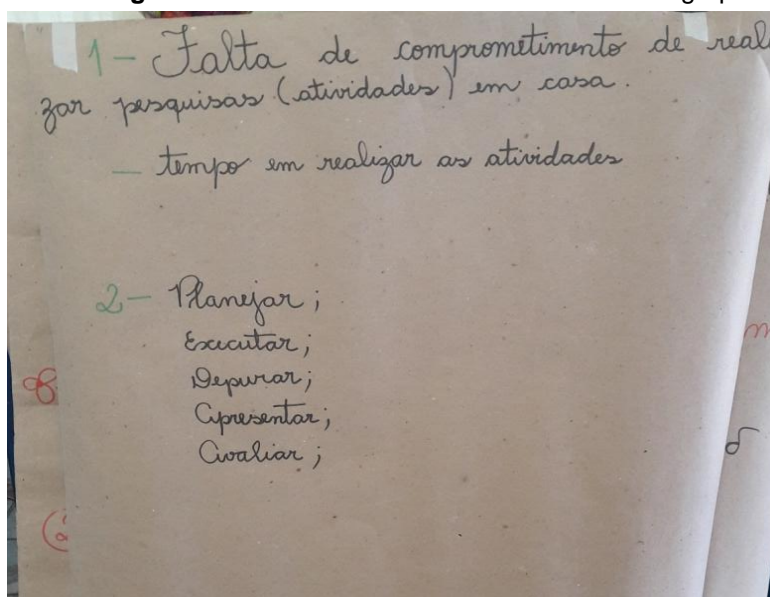 1- Falta de comprometimento de reali
zar pesquisas (atividades) em casa.
- tempo em realizar as atividades
2- Planejar;
Executar;
Depurar;
Apresentar;
Avaliar;